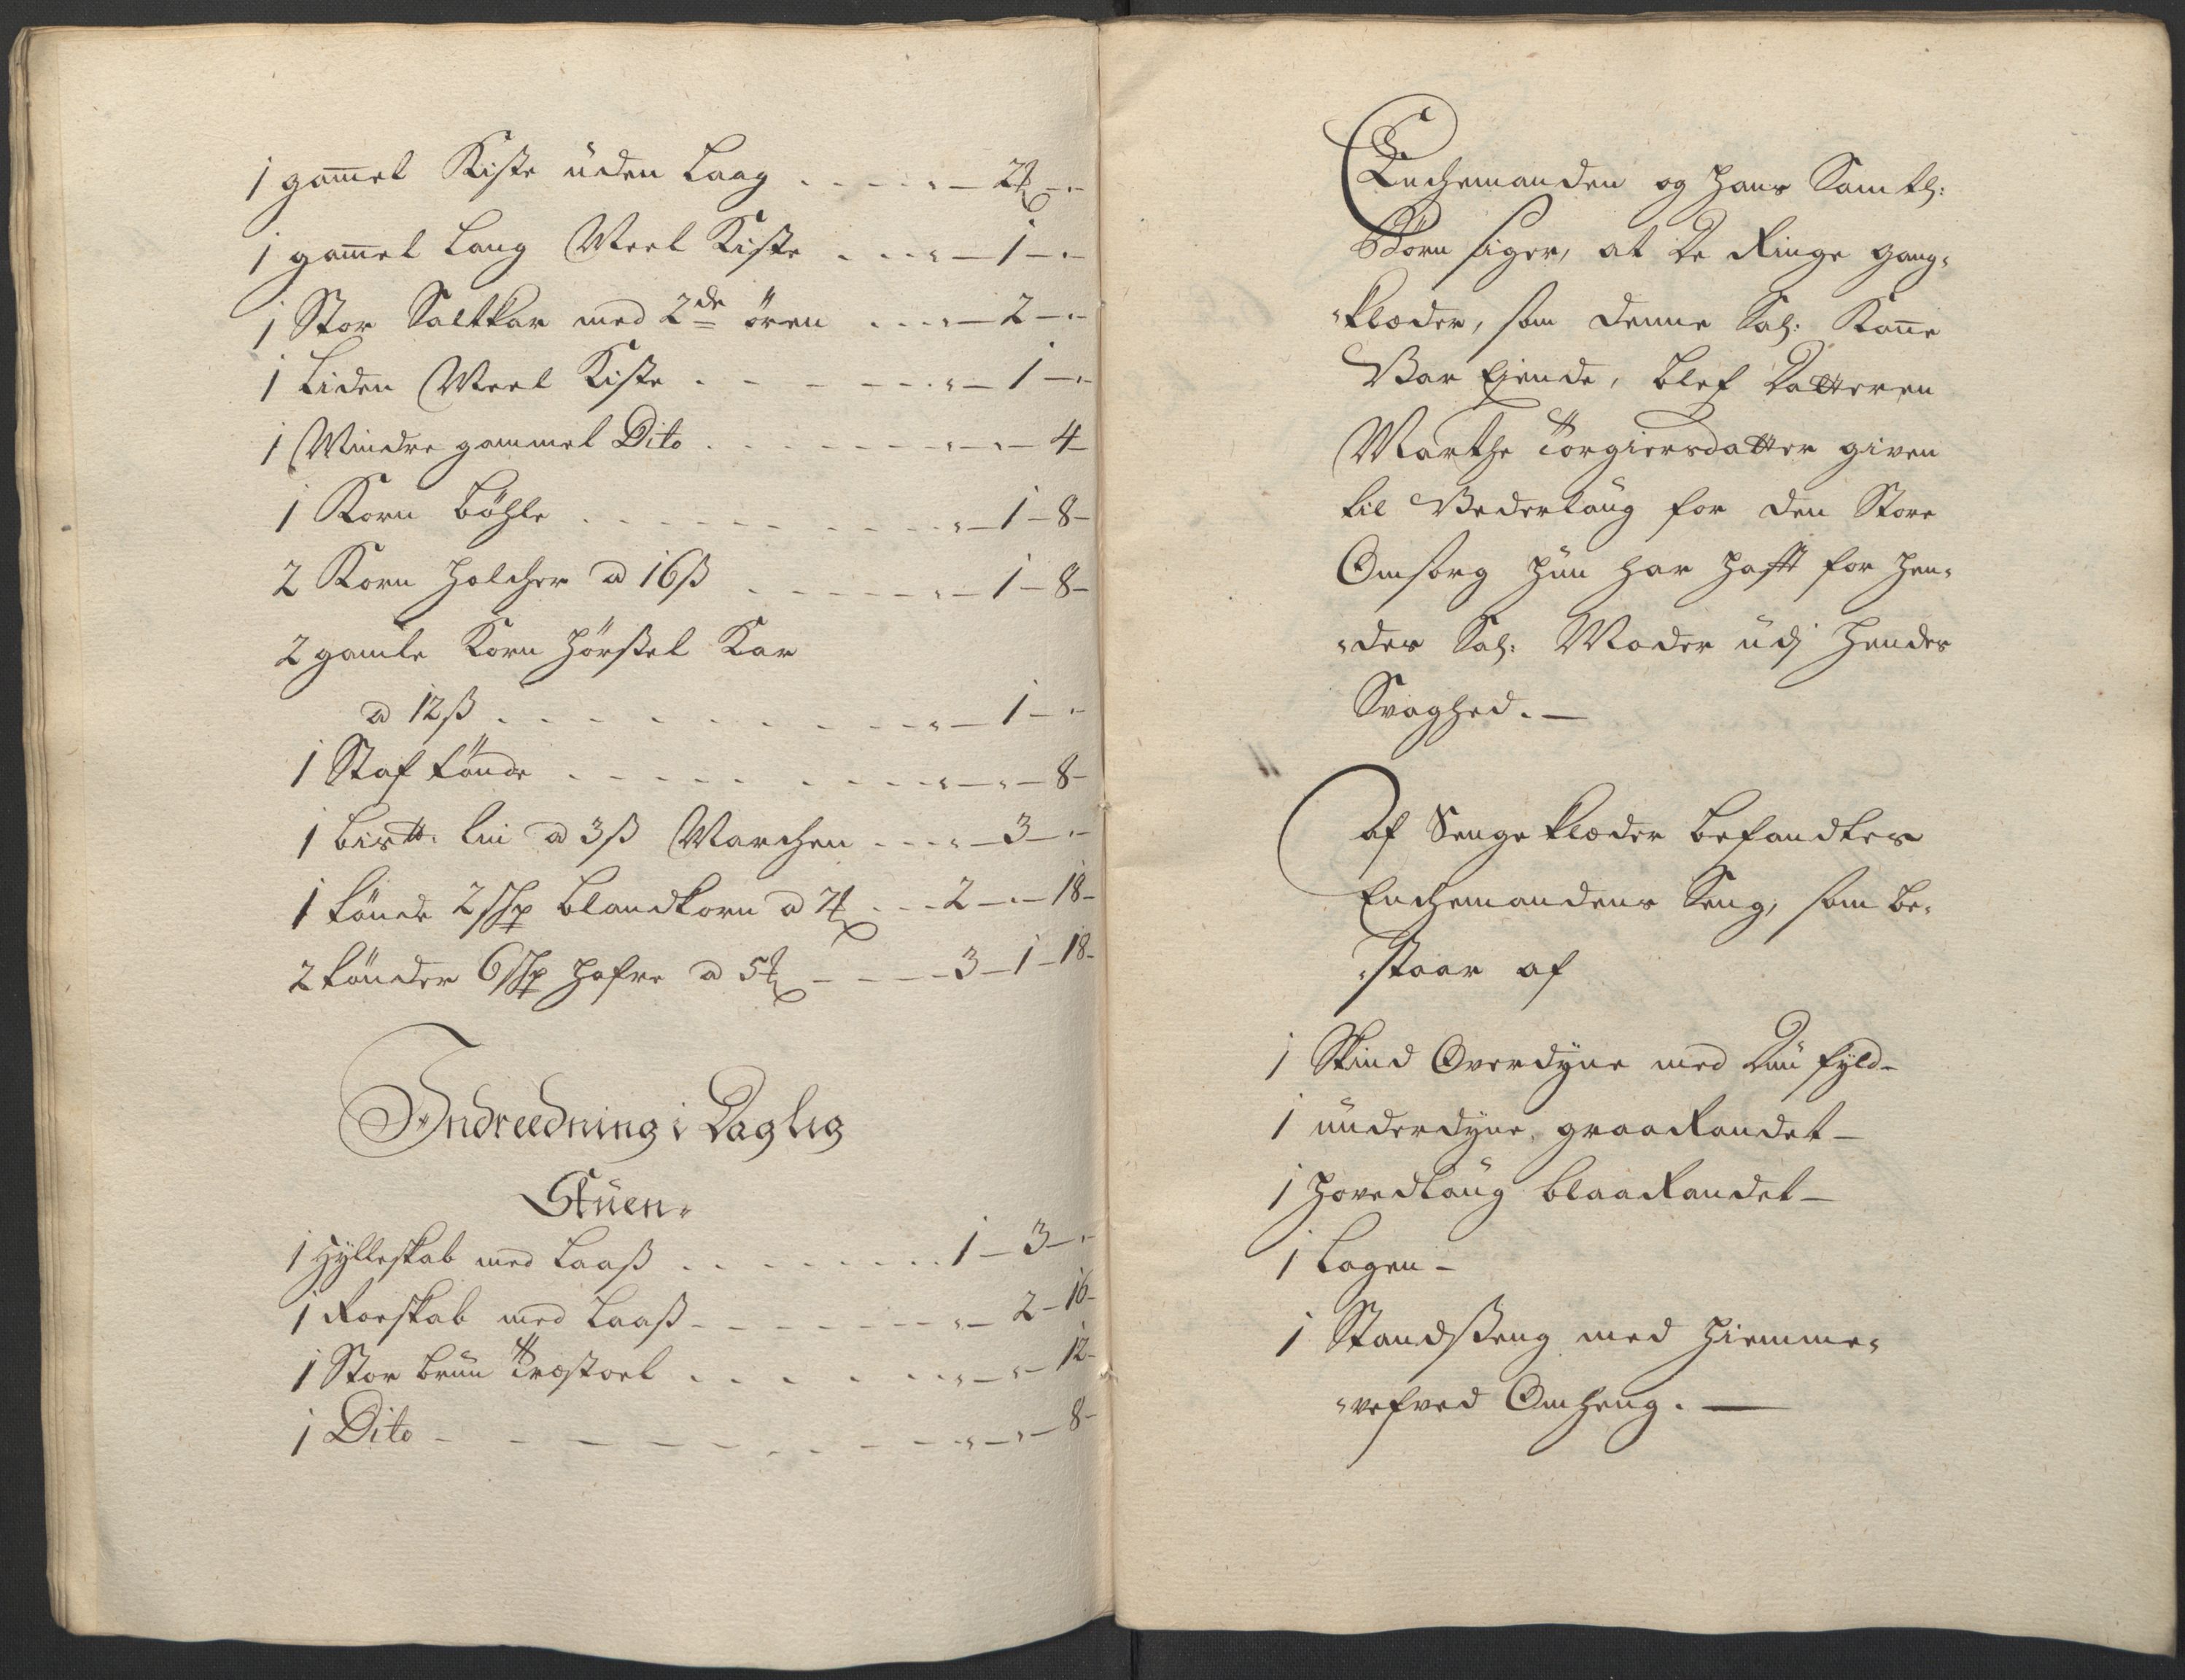 1 gam̄el Kiste uden Laag . . . . „ – 2 ₰ – „
1 gam̄el Lang Meel Kiste . . . „ – 1 – „
1 Stor Saltkar med 2de ören . . . „ – 2 – „
1 Liden Meel Kiste . . . . . . „ – 1 – „
1 Mindre gammel Dito . . . . . . „ – „ – 4 –
1 Korn Böhle . . . . . . . . „ – 1 – 8 –
2 Korn Holcher a 16ß . . . . . „ – 1 – 8 –
2 gamle Korn Hörßel Kar
a 12ß . . . . . . . . „ – 1 – „
1 Staf tönde . . . . . . . . „ – „ – 8 –
1 bis℔: Liin a 3ß Marchen . . . „ – 3 – „
1 tönde 2 Shp blandkorn a 7 . . . 2 – „ – 18 –
2 tönder 6 Shp Hafre a 5 – – – 3 – 1 – 18 –
Indreedning i Daglig
Stuen.
1 Hylleskab med Laaß . . . . . . . 1 – 3 – „
1 Roeskab med Laaß – – – – – „ – 2 – 16 –
1 Stor bruun Træstoel . . . . . . „ – „ – 12 –
1 Dito – – – – – – – – „ – „ – 8 –
Enchemanden og Hans Samtl:
Börn siger, at De Ringe gang-
klæder, som denne Sal: Kone
Var Ejende, blef Datteren
Marthe Torgiersdatter given
til Vederlaug for den Store
Omsorg Hun har Hafft for Hen-
des Sal: Moder udj Hendes
Svaghed. –
Af Senge klæder befandtes
Enchemandens Seng, som be-
staar af
1 Skind Overdyne med Duun fyld –
1 underdyne, graaRandet –
1 Hovedlaug blaaRandet –
1 Lagen –
1 Standßeng med Hiemme-
vefved Omheng. –